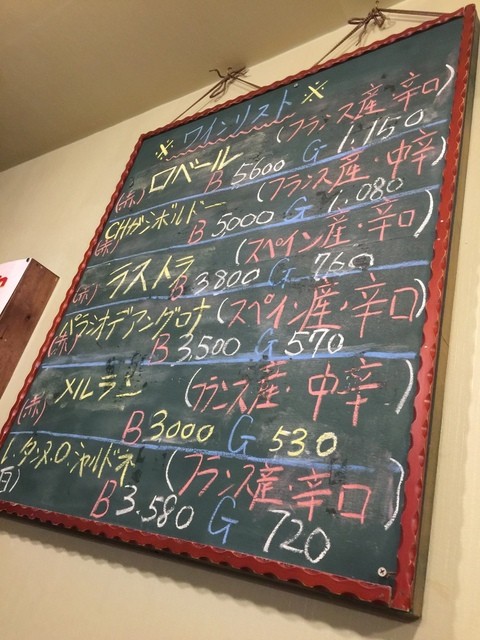 ※ ワインリスト ※
ロベール (フランス産・辛口)
(赤) B 5600 G 1,150
CHガンボルドー (フランス産・中辛)
(赤) B 5000 G 1,080
ラストラ (スペイン産・辛口)
(赤) B 3800 G 760
パラシオデアングロナ (スペイン産・辛口)
(赤) B 3,500 G 570
メルラー (フランス産・中辛)
(赤) B 3,000 G 530
シャルドネ (フランス産・辛口)
B 3,580 G 720